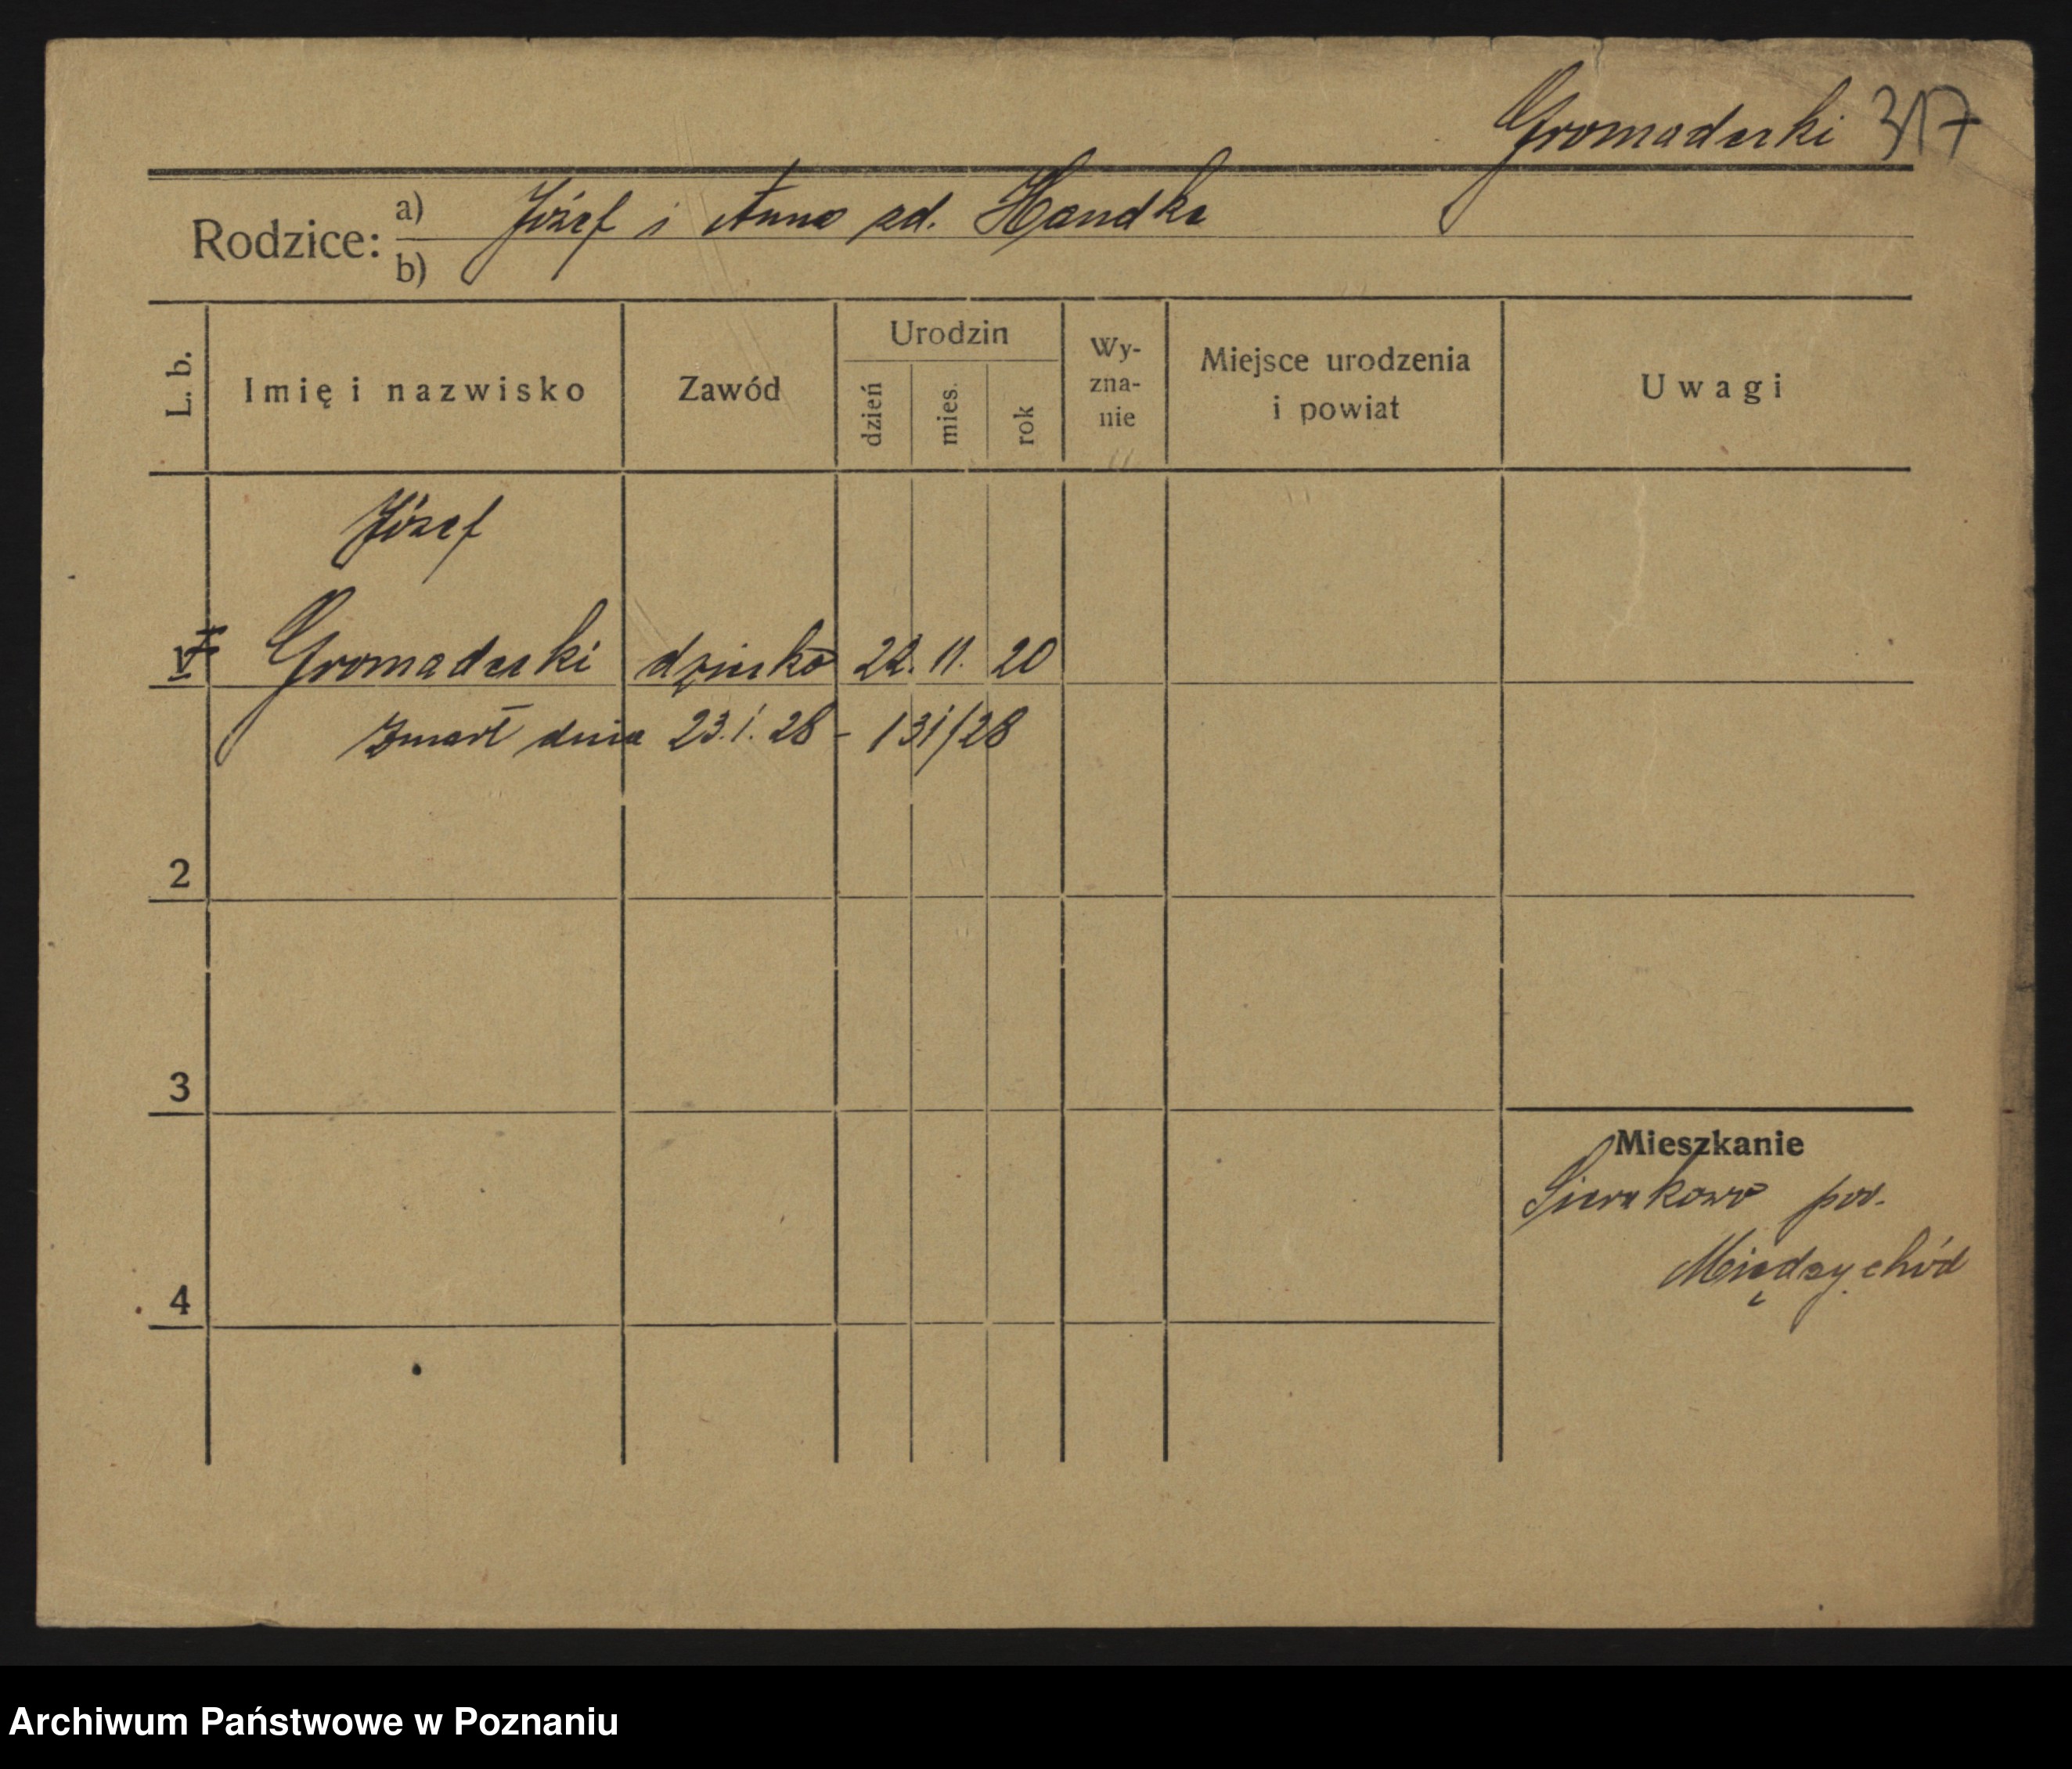 Gromadecki 317
Rodzice: a) Józef i Anna zd. Handke
b)
L. b.
Imię i nazwisko
Zawód
Urodzin
dzień
mies.
rok
Wy-
zna-
nie
Miejsce urodzenia
i powiat
Uwagi
Józef
1 Gromadecki dziecko 22. 11. 20
Zmarł dnia 23.1.28 - 131/28
2
3
4
Mieszkanie
Sierakowo pow.
Międzychód
Archiwum Państwowe w Poznaniu